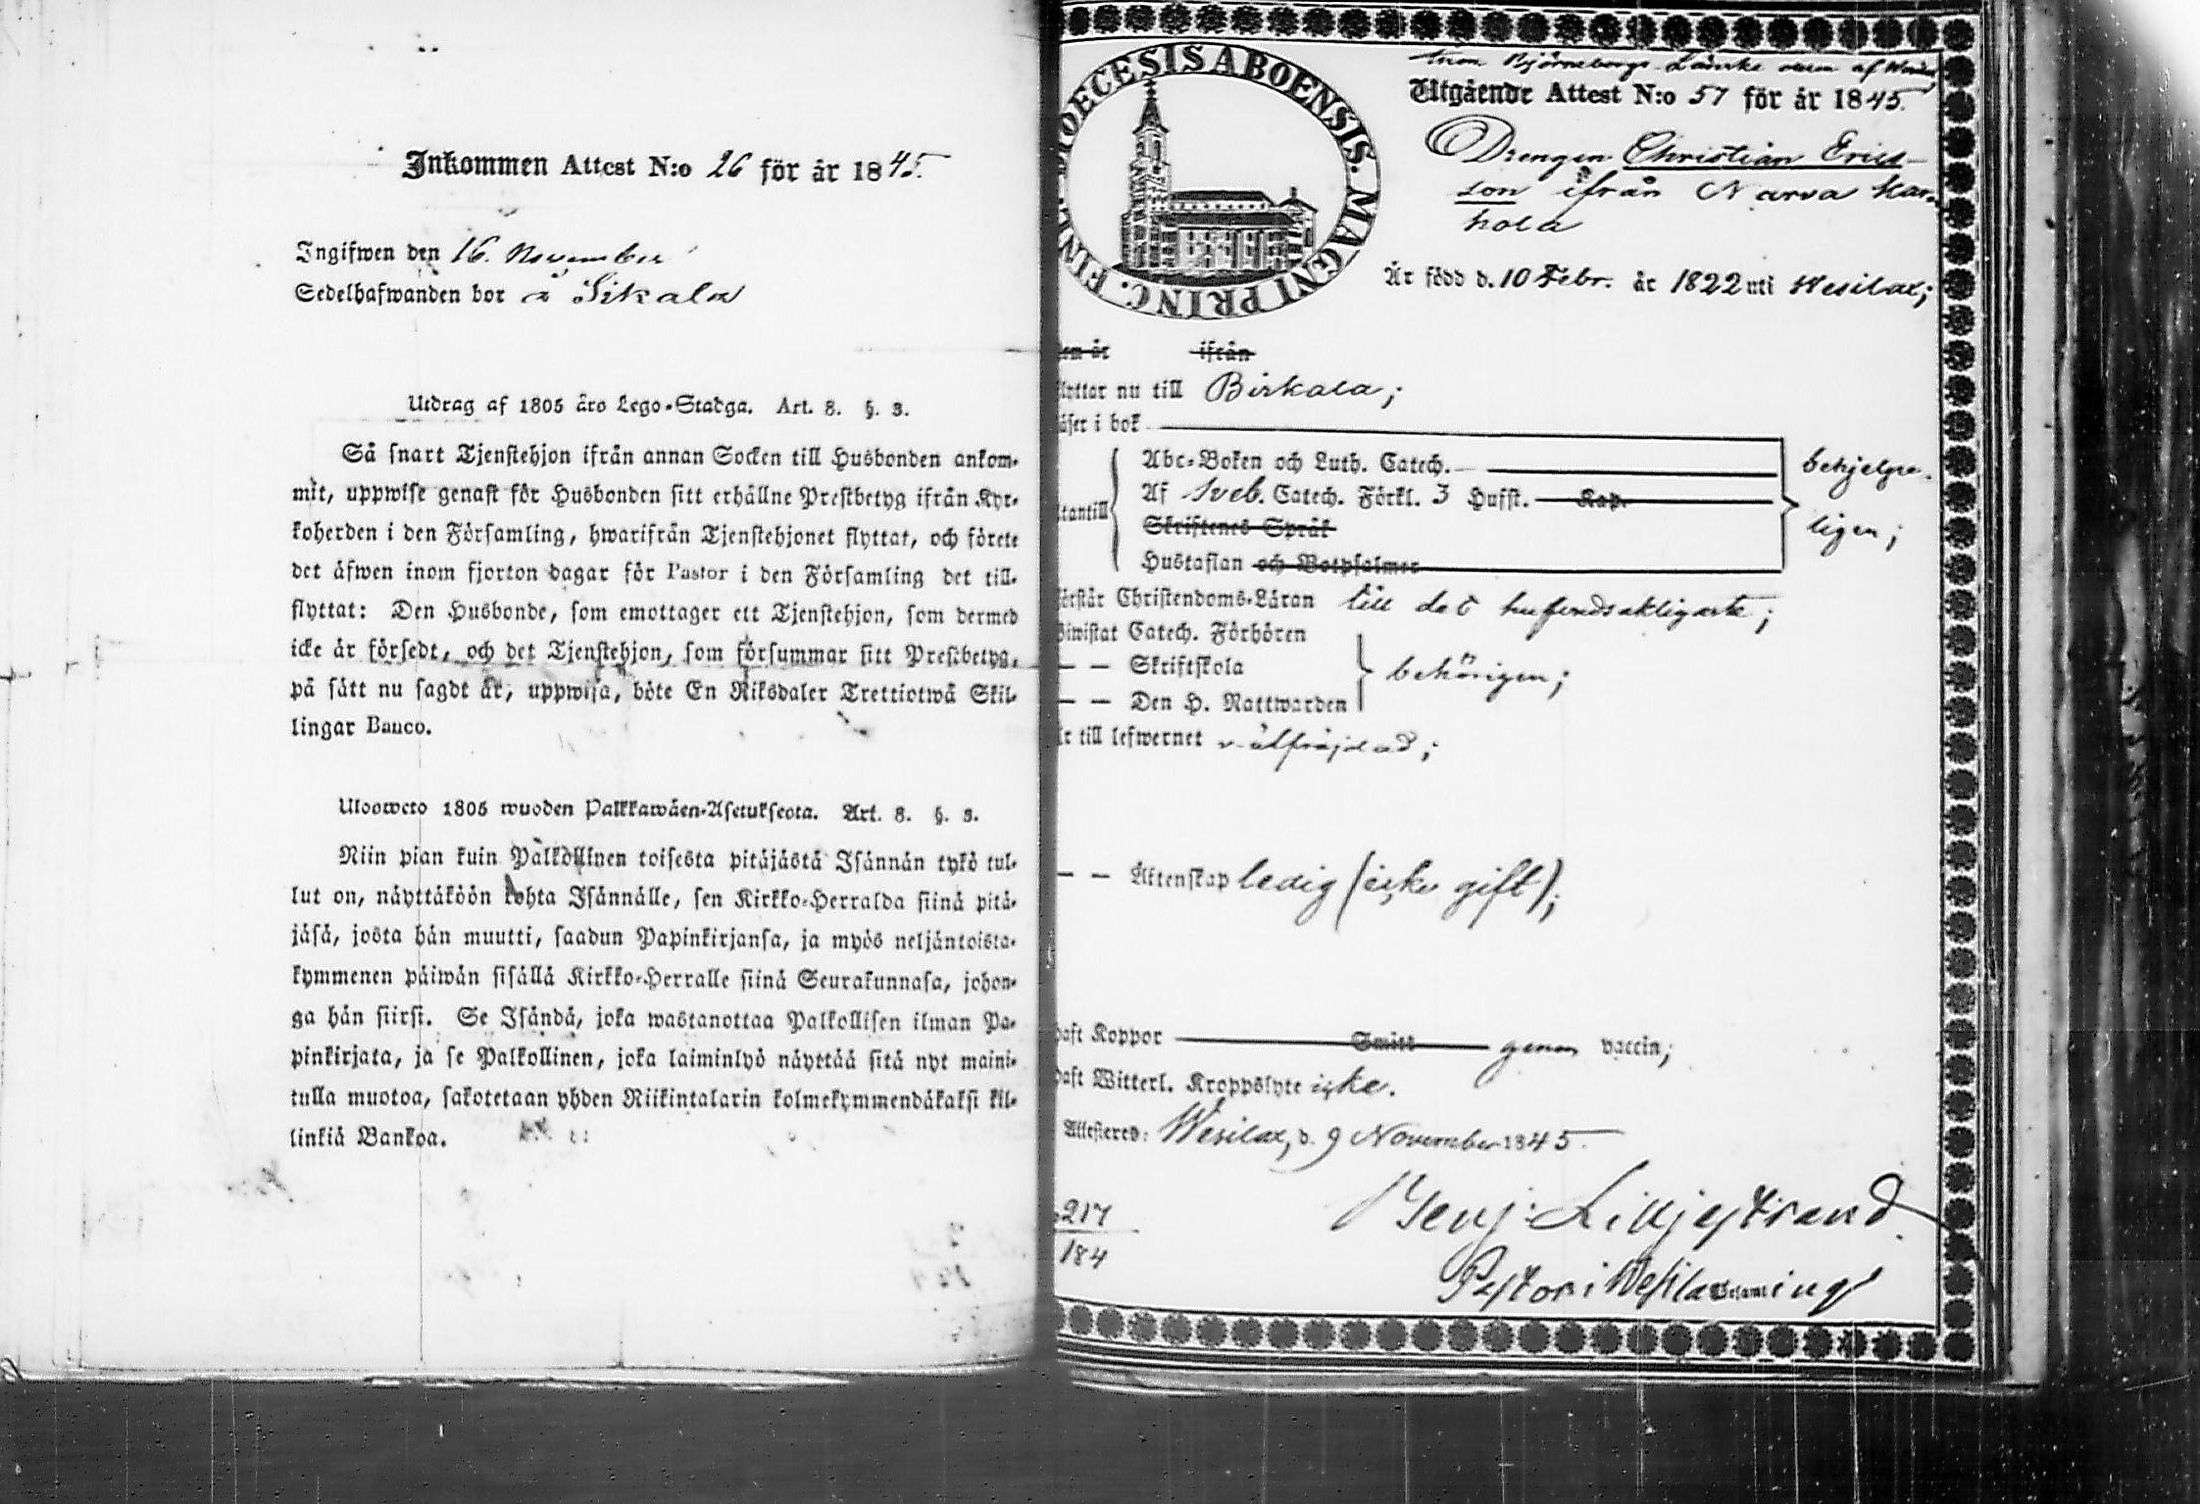 Inkommen Attest N:o 26 för år 1845.
Ingifwen den 16. November
Sedelhafwanden bor å Sikala
Utdrag af 1805 års Lego-Stadga. Art. 8. §. 3.
Så snart Tjenstehjon ifrån annan Socken till Husbonden ankom-
mit, uppwise genast för Husbonden sitt erhållne Prestbetyg ifrån Kyr-
koherden i den Församling, hwarifrån Tjenstehjonet flyttat, och förete
det äfwen inom fjorton dagar för Pastor i den Församling det till-
flyttat: Den Husbonde, som emottager ett Tjenstehjon, som dermed
icke är försedt, och det Tjenstehjon, som försummar sitt Prestbetyg,
på sätt nu sagdt är, uppwisa, böte En Riksdaler Trettiotwå Skil-
lingar Banco.
Ulosweto 1805 wuoden Palkkawäen-Asetuksesta. Art. 8. §. 3.
Niin pian kuin Palkollinen toisesta pitäjästä Isännän tykö tul-
lut on, näyttäköön kohta Isännälle, sen Kirkko-Herralda siinä pitä-
jäsä, josta hän muutti, saadun Papinkirjansa, ja myös neljäntoista-
kymmenen päiwän sisällä Kirkko-Herralle siinä Seurakunnasa, johon-
ga hän siirsi. Se Isändä, joka wastanottaa Palkollisen ilman Pa-
pinkirjata, ja se Palkollinen, joka laiminlyö näyttää sitä nyt maini-
tulla muotoa, sakotetaan yhden Riikintalarin kolmekymmendäkaksi kil-
linkiä Bankoa.
DIOECESIS ABOENSIS. MAGNI PRINC. FINL.
Björneborgs Länske af
Utgående Attest N:o 57 för år 1845.
Drengen Christian Erics-
son ifrån Narva Kar-
kola
Är född d. 10 Febr. år 1822 uti Wesilax;
den år ifrån
flyttar nu till Birkala;
läser i bok
Abc-Boken och Luth. Catech.
behjelpe-
utantill
Af Sveb. Catech. Förkl. 3 Hufst. Kap.
Skriftenes Språk
ligen;
Hustaflan och Botpsalmer
förstår Christendoms-Läran till det hufvudsakligaste;
Biwistat Catech. Förhören
— — Skriftskola
behörigen;
— — Den H. Nattwarden
är till lefwernet välfräjdad;
— — Äktenskap ledig (icke gift);
haft Koppor Smitt genom vaccin;
haft Witterl. Kroppslyte icke.
Attesteres: Wesilax, d. 9 November 1845.
217
184
Benj. Lilljestrand.
Pastor i Wesilax Församling